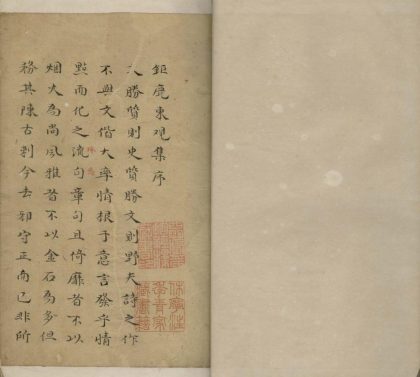 鉅鹿東觀集序
文勝質則史質勝文則野夫詩之作
不與文偕大率情根于意言發乎情
點而化之流句章句且倚靡者不以
烟火為尚風雅者不以金石為多但
務其陳古刺今去邪守正而已非所
休寧汪
季青家
藏書籍